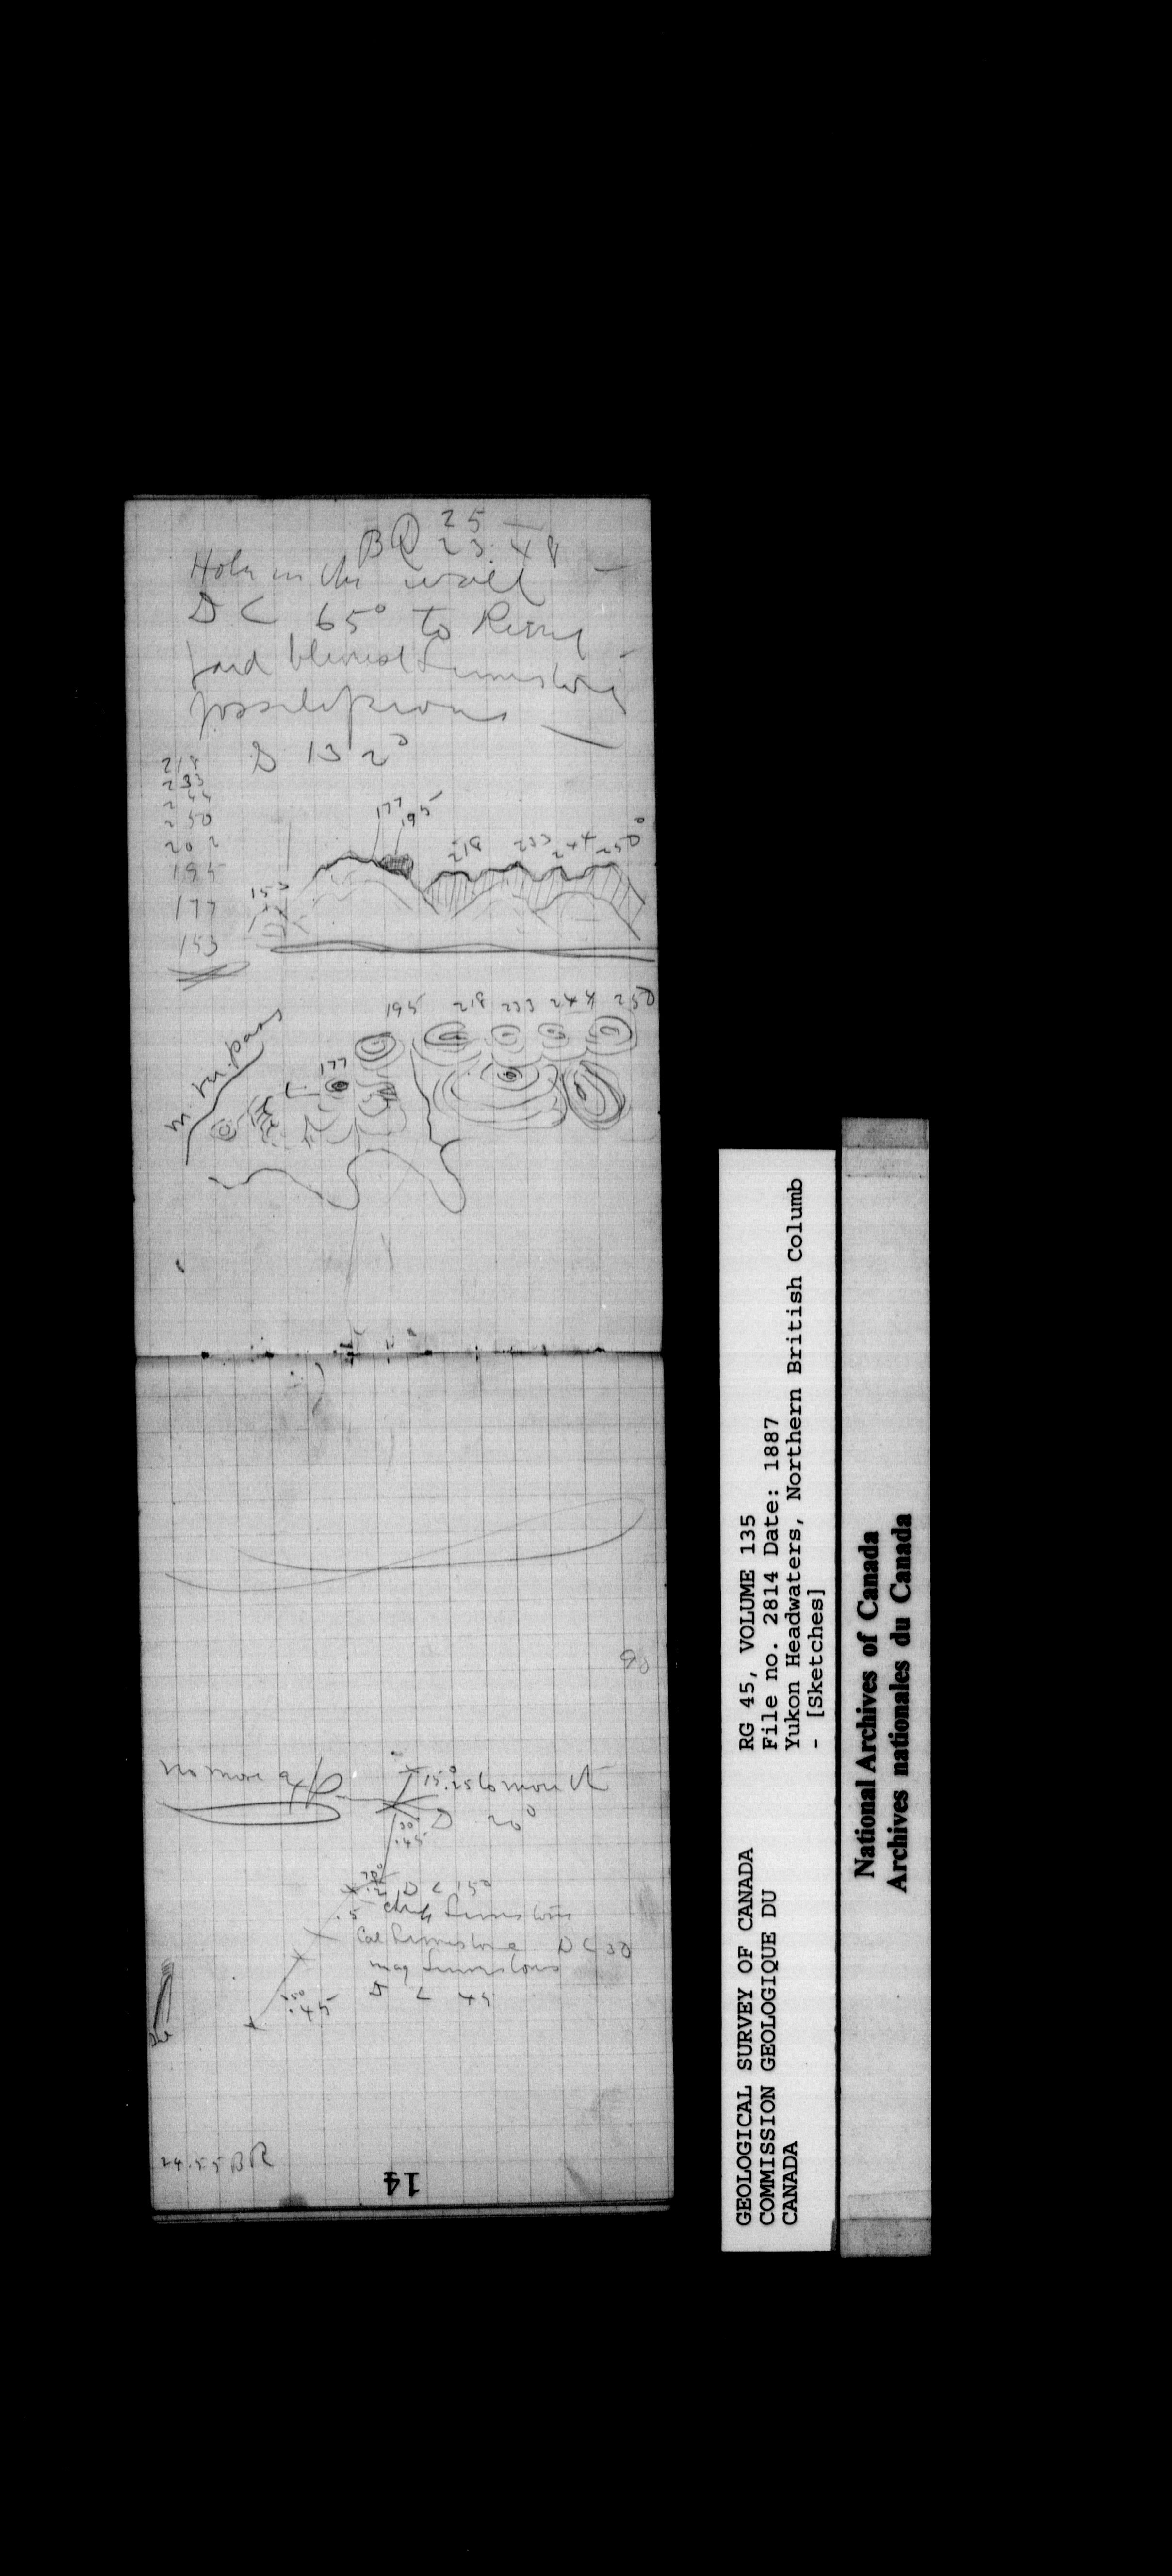 25
BR 23.48
Hole in the wall
D < 65° to River
limestone
fossiliferous
D 132°
218
233
244
250
202
195
177
153
177 195
218 233 244 250°
153
195 218 233 244 250
177
pass
90
no more
15° .25 to mouth
D 20°
30°
.45
D < 150
.5
limestone
Cal limestone D < 30
mag limestone
D < 45
.45
24.55 BR
14
GEOLOGICAL SURVEY OF CANADA
COMMISSION GEOLOGIQUE DU
CANADA
RG 45, VOLUME 135
File no. 2814 Date: 1887
Yukon Headwaters, Northern British Columb
- [Sketches]
National Archives of Canada
Archives nationales du Canada